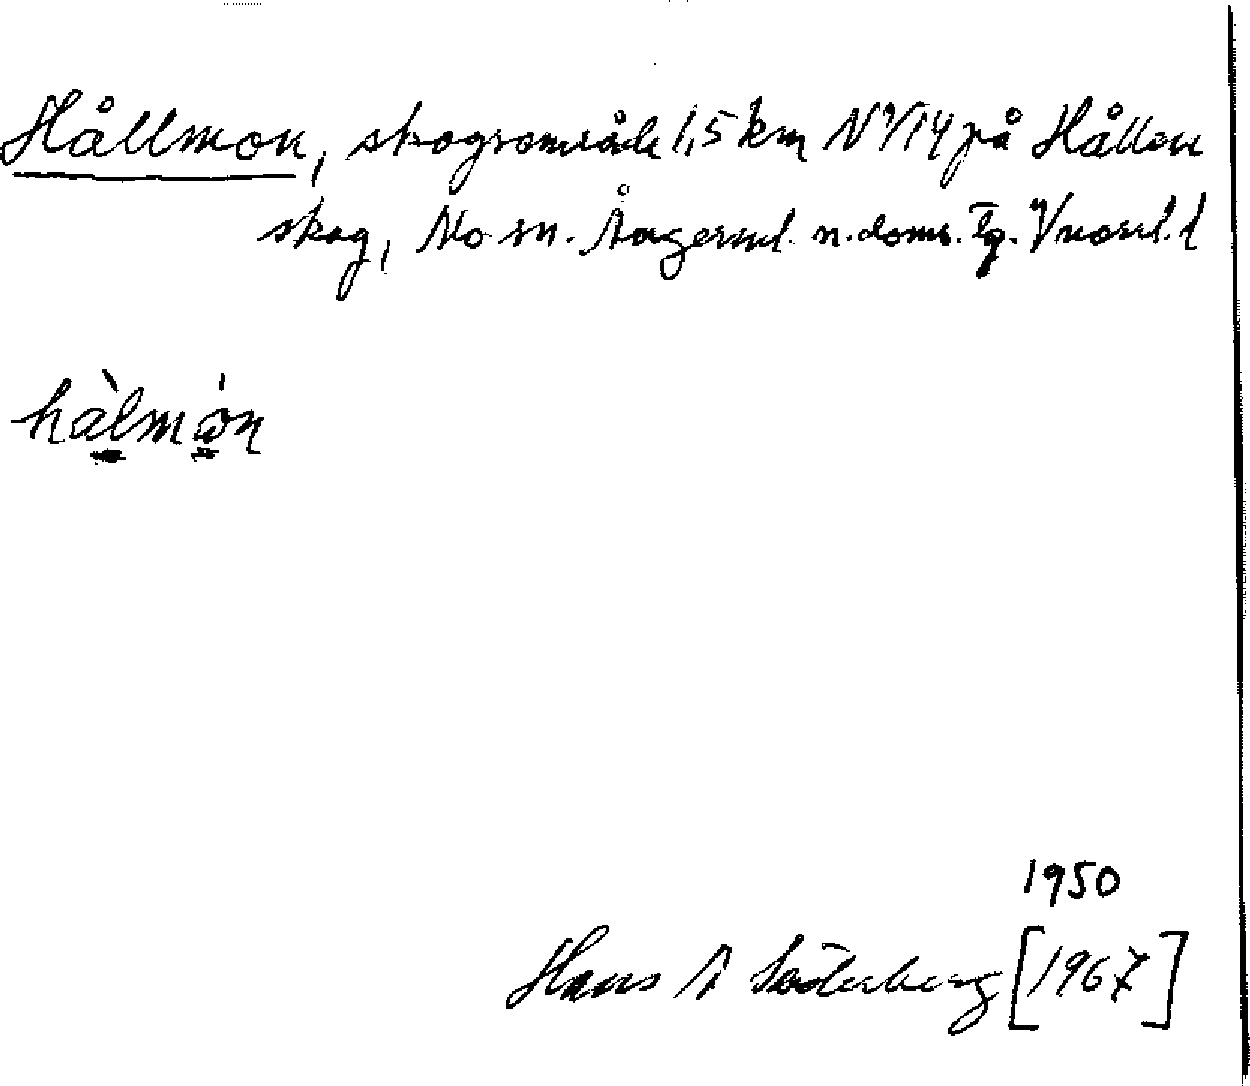 Hållmon, skogsområde 1,5 km NV14 på Hållen
skog, No sn. Ångerml. n. doms. Tg. Vnorrl. l
hàlmón
1950
Hans A Söderberg [1967]